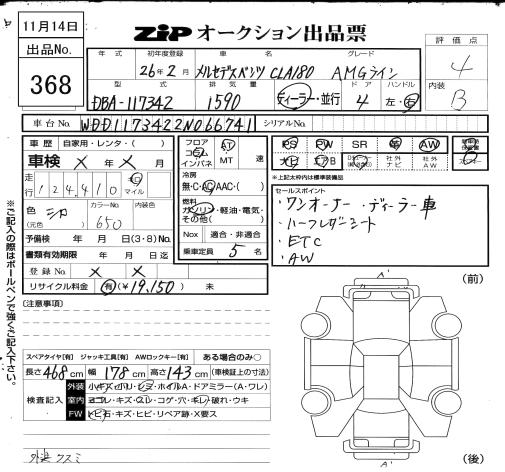 11月14日
出品No.
368
ZIP オークション出品票
評価点
4
内装
B
年式 初年度登録 車名 グレード
26年2月 メルセデスベンツ CLA180 AMGライン
型式 排気量 ドア ハンドル
DBA-117342 1590 ディーラー・並行 4 左・右
車台No. WDD1173422N066741 シリアルNo.
車歴 自家用・レンタ・( )
車検 × 年 × 月
走行 124,410 km マイル
色 シロ (元色)
カラーNo. 650
内装色
予備検 年 月 日(3・8)No.
書類有効期限 年 月 日迄
登録No. × ×
リサイクル料金 有(¥19,150) 未
フロア コラム インパネ AT MT 速
冷房 無・C・AC・AAC・( )
燃料 ガソリン・軽油・電気・その他( )
Nox 適合・非適合
乗車定員 5 名
PS PW SR 革 AW
ナビ エアB 社外ナビ 社外AW
※上記太枠内は標準装備品
セールスポイント
・ワンオーナー・ディーラー車
・ハーフレザーシート
・ETC
・AW
※ご記入の際はボールペンで強くご記入下さい。
(注意事項)
スペアタイヤ[有] ジャッキ工具[有] AWロックキー[有] ある場合のみ○
長さ 468 cm 幅 178 cm 高さ 143 cm (車検証上の寸法)
検査記入
外装 小キズ・小ヘリ・シミ・ホイルA・ドアミラー(A・ワレ)
室内 ヨゴレ・キズ・スレ・コゲ・穴・キレ・破れ・ウキ
FW トビ石・キズ・ヒビ・リペア跡・X要ス
外装クスミ
(前)
A'
A'
(後)